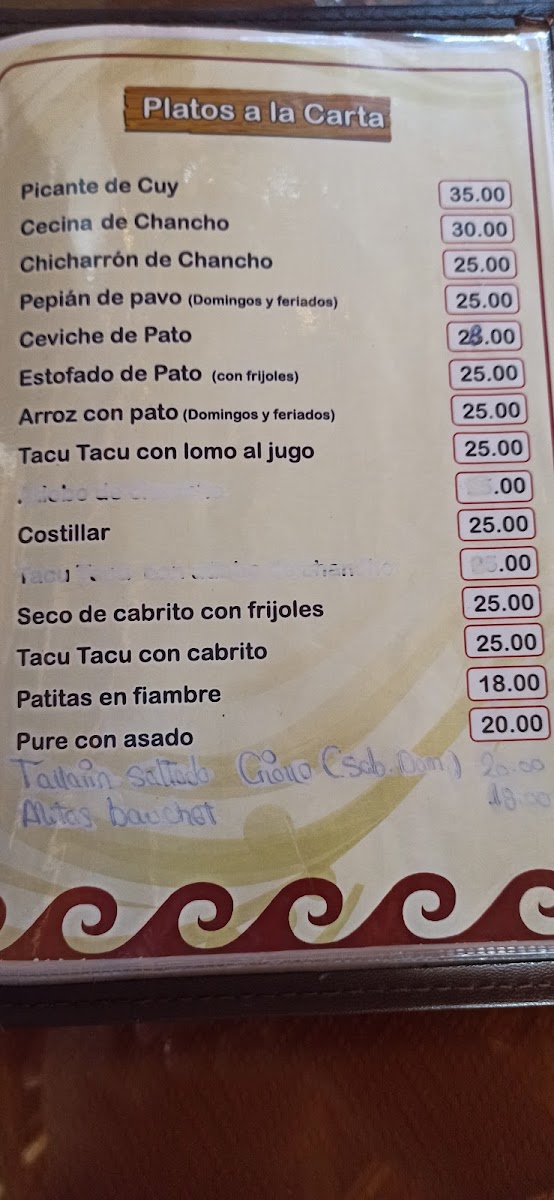 Platos a la Carta
Picante de Cuy 35.00
Cecina de Chancho 30.00
Chicharrón de Chancho 25.00
Pepián de pavo (Domingos y feriados) 25.00
Ceviche de Pato 28.00
Estofado de Pato (con frijoles) 25.00
Arroz con pato (Domingos y feriados) 25.00
Tacu Tacu con lomo al jugo 25.00
.00
Costillar 25.00
Tacu .00
Seco de cabrito con frijoles 25.00
Tacu Tacu con cabrito 25.00
Patitas en fiambre 18.00
Pure con asado 20.00
Tallarin Saltado Criollo (Sab. Dom.) 20.00
Alitas bouchet 18.00